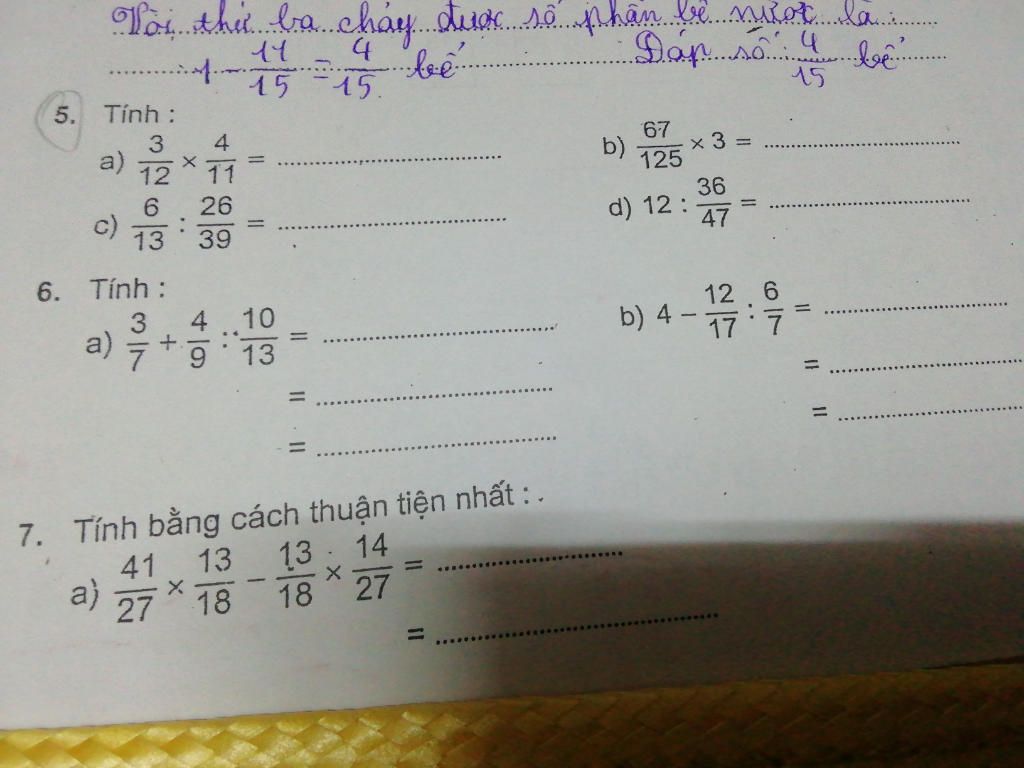 Vòi thứ ba chảy được số phần bể nước là:
1 - 11/15 = 4/15 bể Đáp số: 4/15 bể
5. Tính :
a) 3/12 × 4/11 = .................... b) 67/125 × 3 = ....................
c) 6/13 : 26/39 = .................... d) 12 : 36/47 = ....................
6. Tính :
a) 3/7 + 4/9 : 10/13 = .................... b) 4 - 12/17 : 6/7 = ....................
= .................... = ....................
= .................... = ....................
7. Tính bằng cách thuận tiện nhất :
a) 41/27 × 13/18 - 13/18 × 14/27 = ....................
= ....................